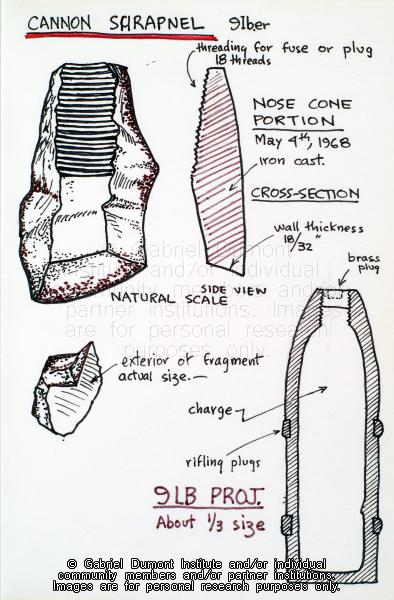 CANNON SHRAPNEL 9lber
threading for fuse or plug
18 threads
NOSE CONE
PORTION
May 4th, 1968
iron cast.
CROSS-SECTION
wall thickness
18/32"
brass
plug
SIDE VIEW
NATURAL SCALE
Gabriel Dumont
Institute and/or individual
community members and/or
partner institutions. Images
are for personal research
purposes only.
exterior of fragment
actual size.—
charge
rifling plugs
9LB PROJ.
About 1/3 size
© Gabriel Dumont Institute and/or individual
community members and/or partner institutions.
Images are for personal research purposes only.